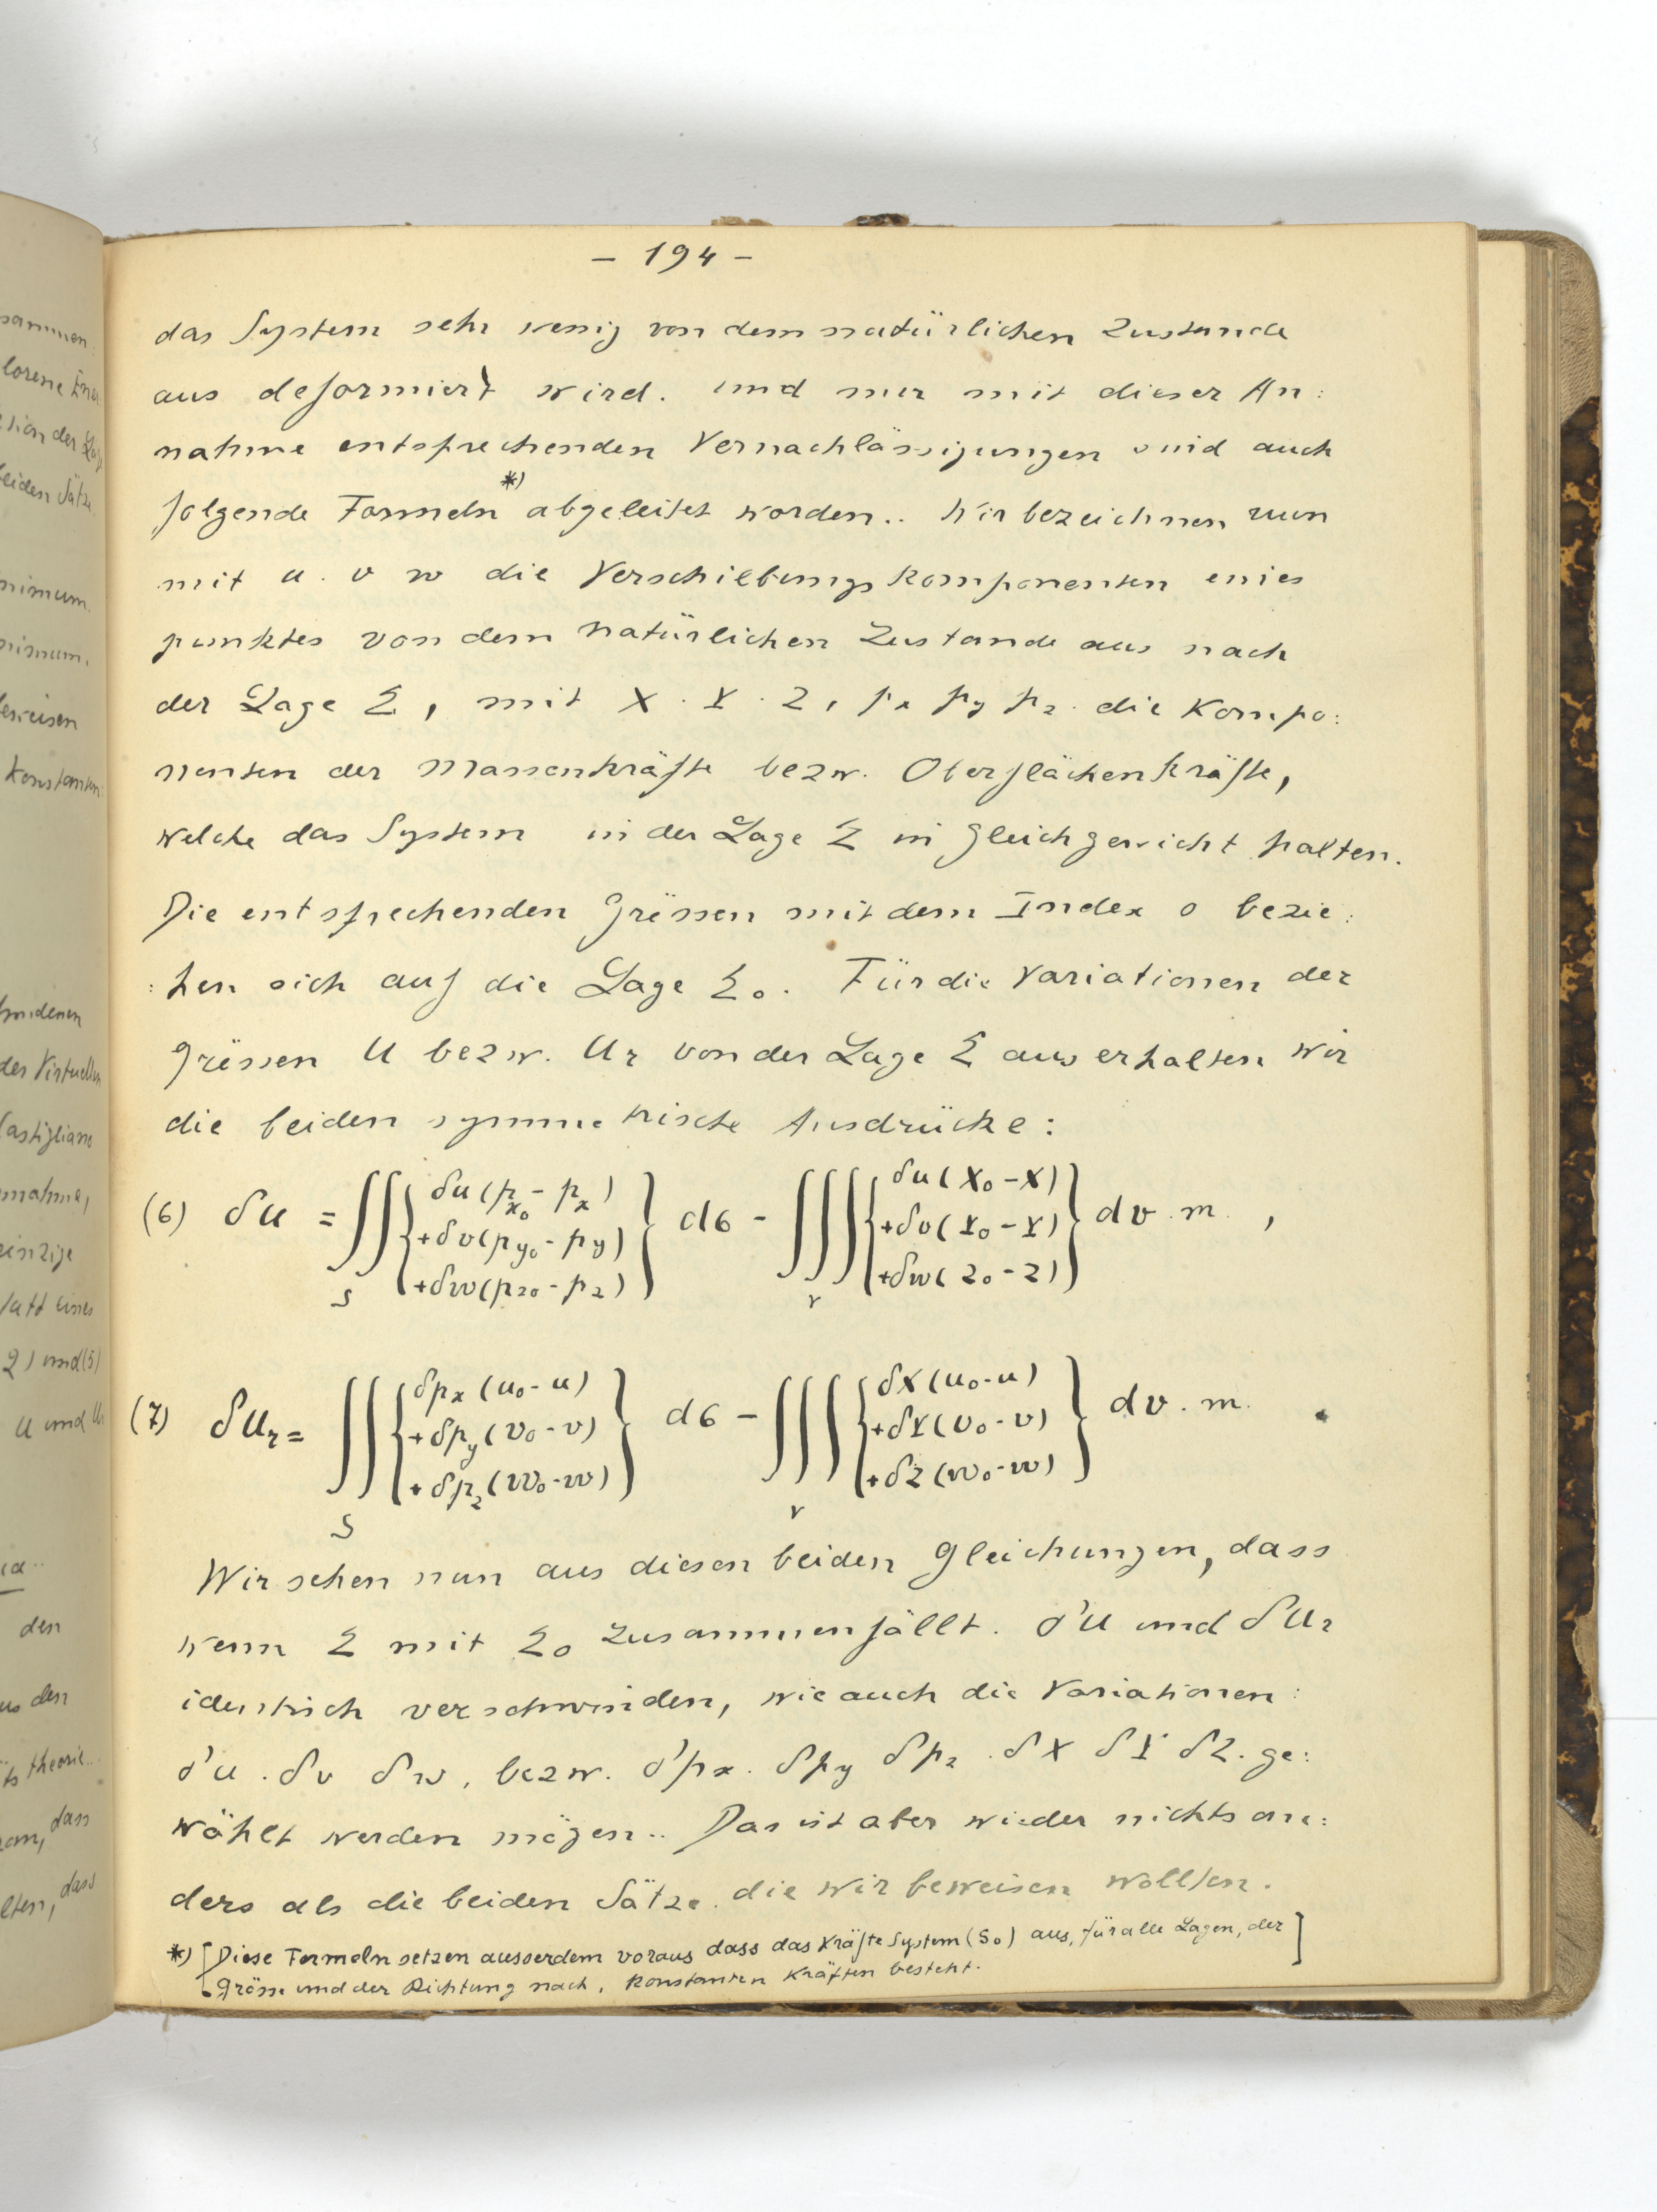 - 194 -
das System sehr wenig von dem natürlichen Zustande
aus deformiert wird. und nur mit dieser An:
nahme entsprechenden Vernachlässigungen sind auch
folgende Formeln *) abgeleitet worden.. Wir bezeichnen nun
mit u . v w die Verschiebungskomponenten eines
punktes von dem natürlichen Zustande aus nach
der Lage Σ, mit X . Y . Z, px py pz . die Kompo:
nenten der Massenkräfte bezw. Oberflächenkräfte,
welche das System in der Lage Σ in gleichgewicht halten.
Die entsprechenden Grössen mit dem Index o bezie:
:hen sich auf die Lage Σo. Für die Variationen der
Grössen U bezw. Ur von der Lage Σ aus erhalten wir
die beiden symmetrische Ausdrücke:
(6) δU = ∬S { δu(px0 - px) +δv(py0 - py) +δw(pz0 - pz) } dσ - ∭V { δu(X0 - X) +δv(Y0 - Y) +δw(Z0 - Z) } dv . m . ,
(7) δUr = ∬S { δpx(u0 - u) +δpy(v0 - v) +δpz(w0 - w) } dσ - ∭V { δX(u0 - u) +δY(v0 - v) +δZ(w0 - w) } dv . m .
Wir sehen nun aus diesen beiden Gleichungen, dass
wenn Σ mit Σo zusammenfällt. δU und δUr
identisch verschwinden, wie auch die Variationen:
δu . δv δw, bezw. δpx . δpy δpz . δX δY δZ. ge:
wählt werden mögen.. Das ist aber wieder nichts an:
ders als die beiden Sätze. die wir beweisen wollten.
*) [Diese Formeln setzen ausserdem voraus dass das Kräfte System (So) aus, für alle Lagen, der]
Grösse und der Richtung nach, konstanten Kräften besteht.
sammen:
lorene Ener
beiden Sätze
nimum.
nimum.
beweisen
Konstanten
der Virtuellen
Castigliano
nnahme,
einzige
statt eines
2) und (5)
U und Ur
den
us den
theorie..
dass
lten, dass